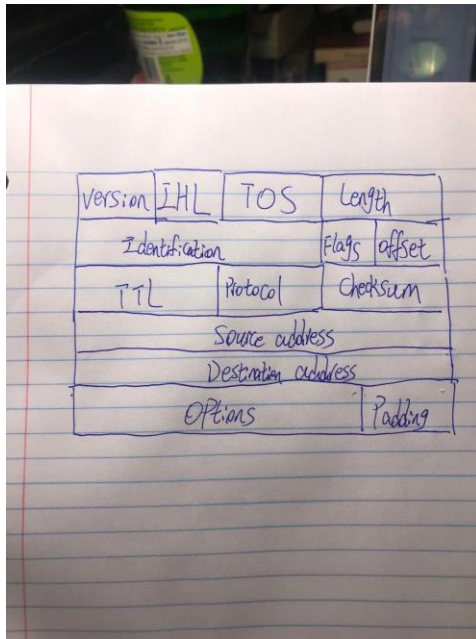 Version IHL TOS Length
Identification Flags offset
TTL Protocol Checksum
Source address
Destination address
Options Padding